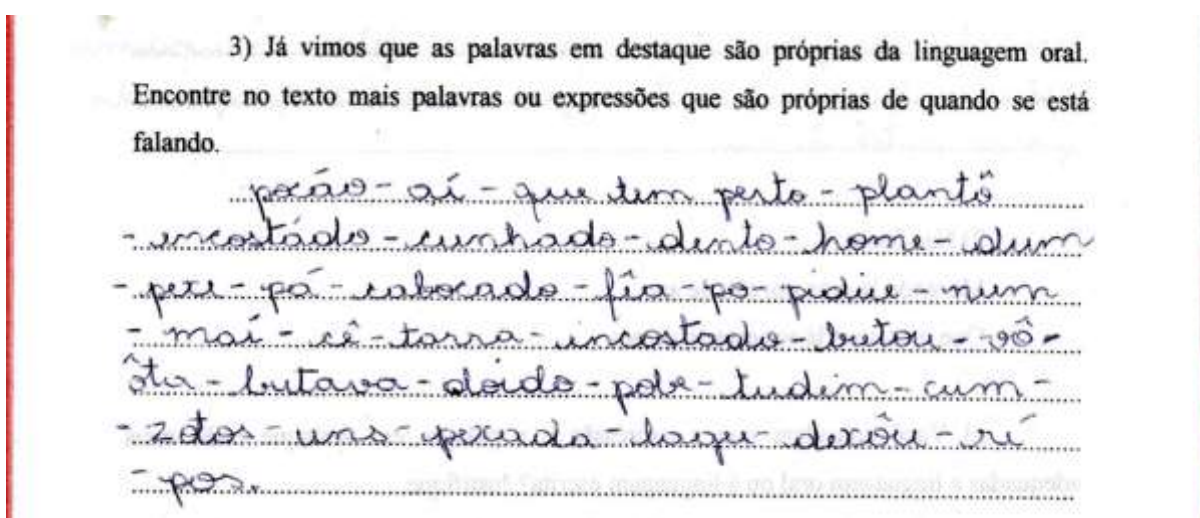 3) Já vimos que as palavras em destaque são próprias da linguagem oral.
Encontre no texto mais palavras ou expressões que são próprias de quando se está
falando.
pocão - aí - que tem perto - plantô
- incostádo - cunhado - dento - home - dum
- pexe - pá - cabocado - fîa - po - pidiu - num
- maí - cê - tarra - incostado - butou - vô -
ôta - butava - doido - pobe - tudim - cum -
- zotos - uns - pexada - laqu - dexôu - rí
- pos.